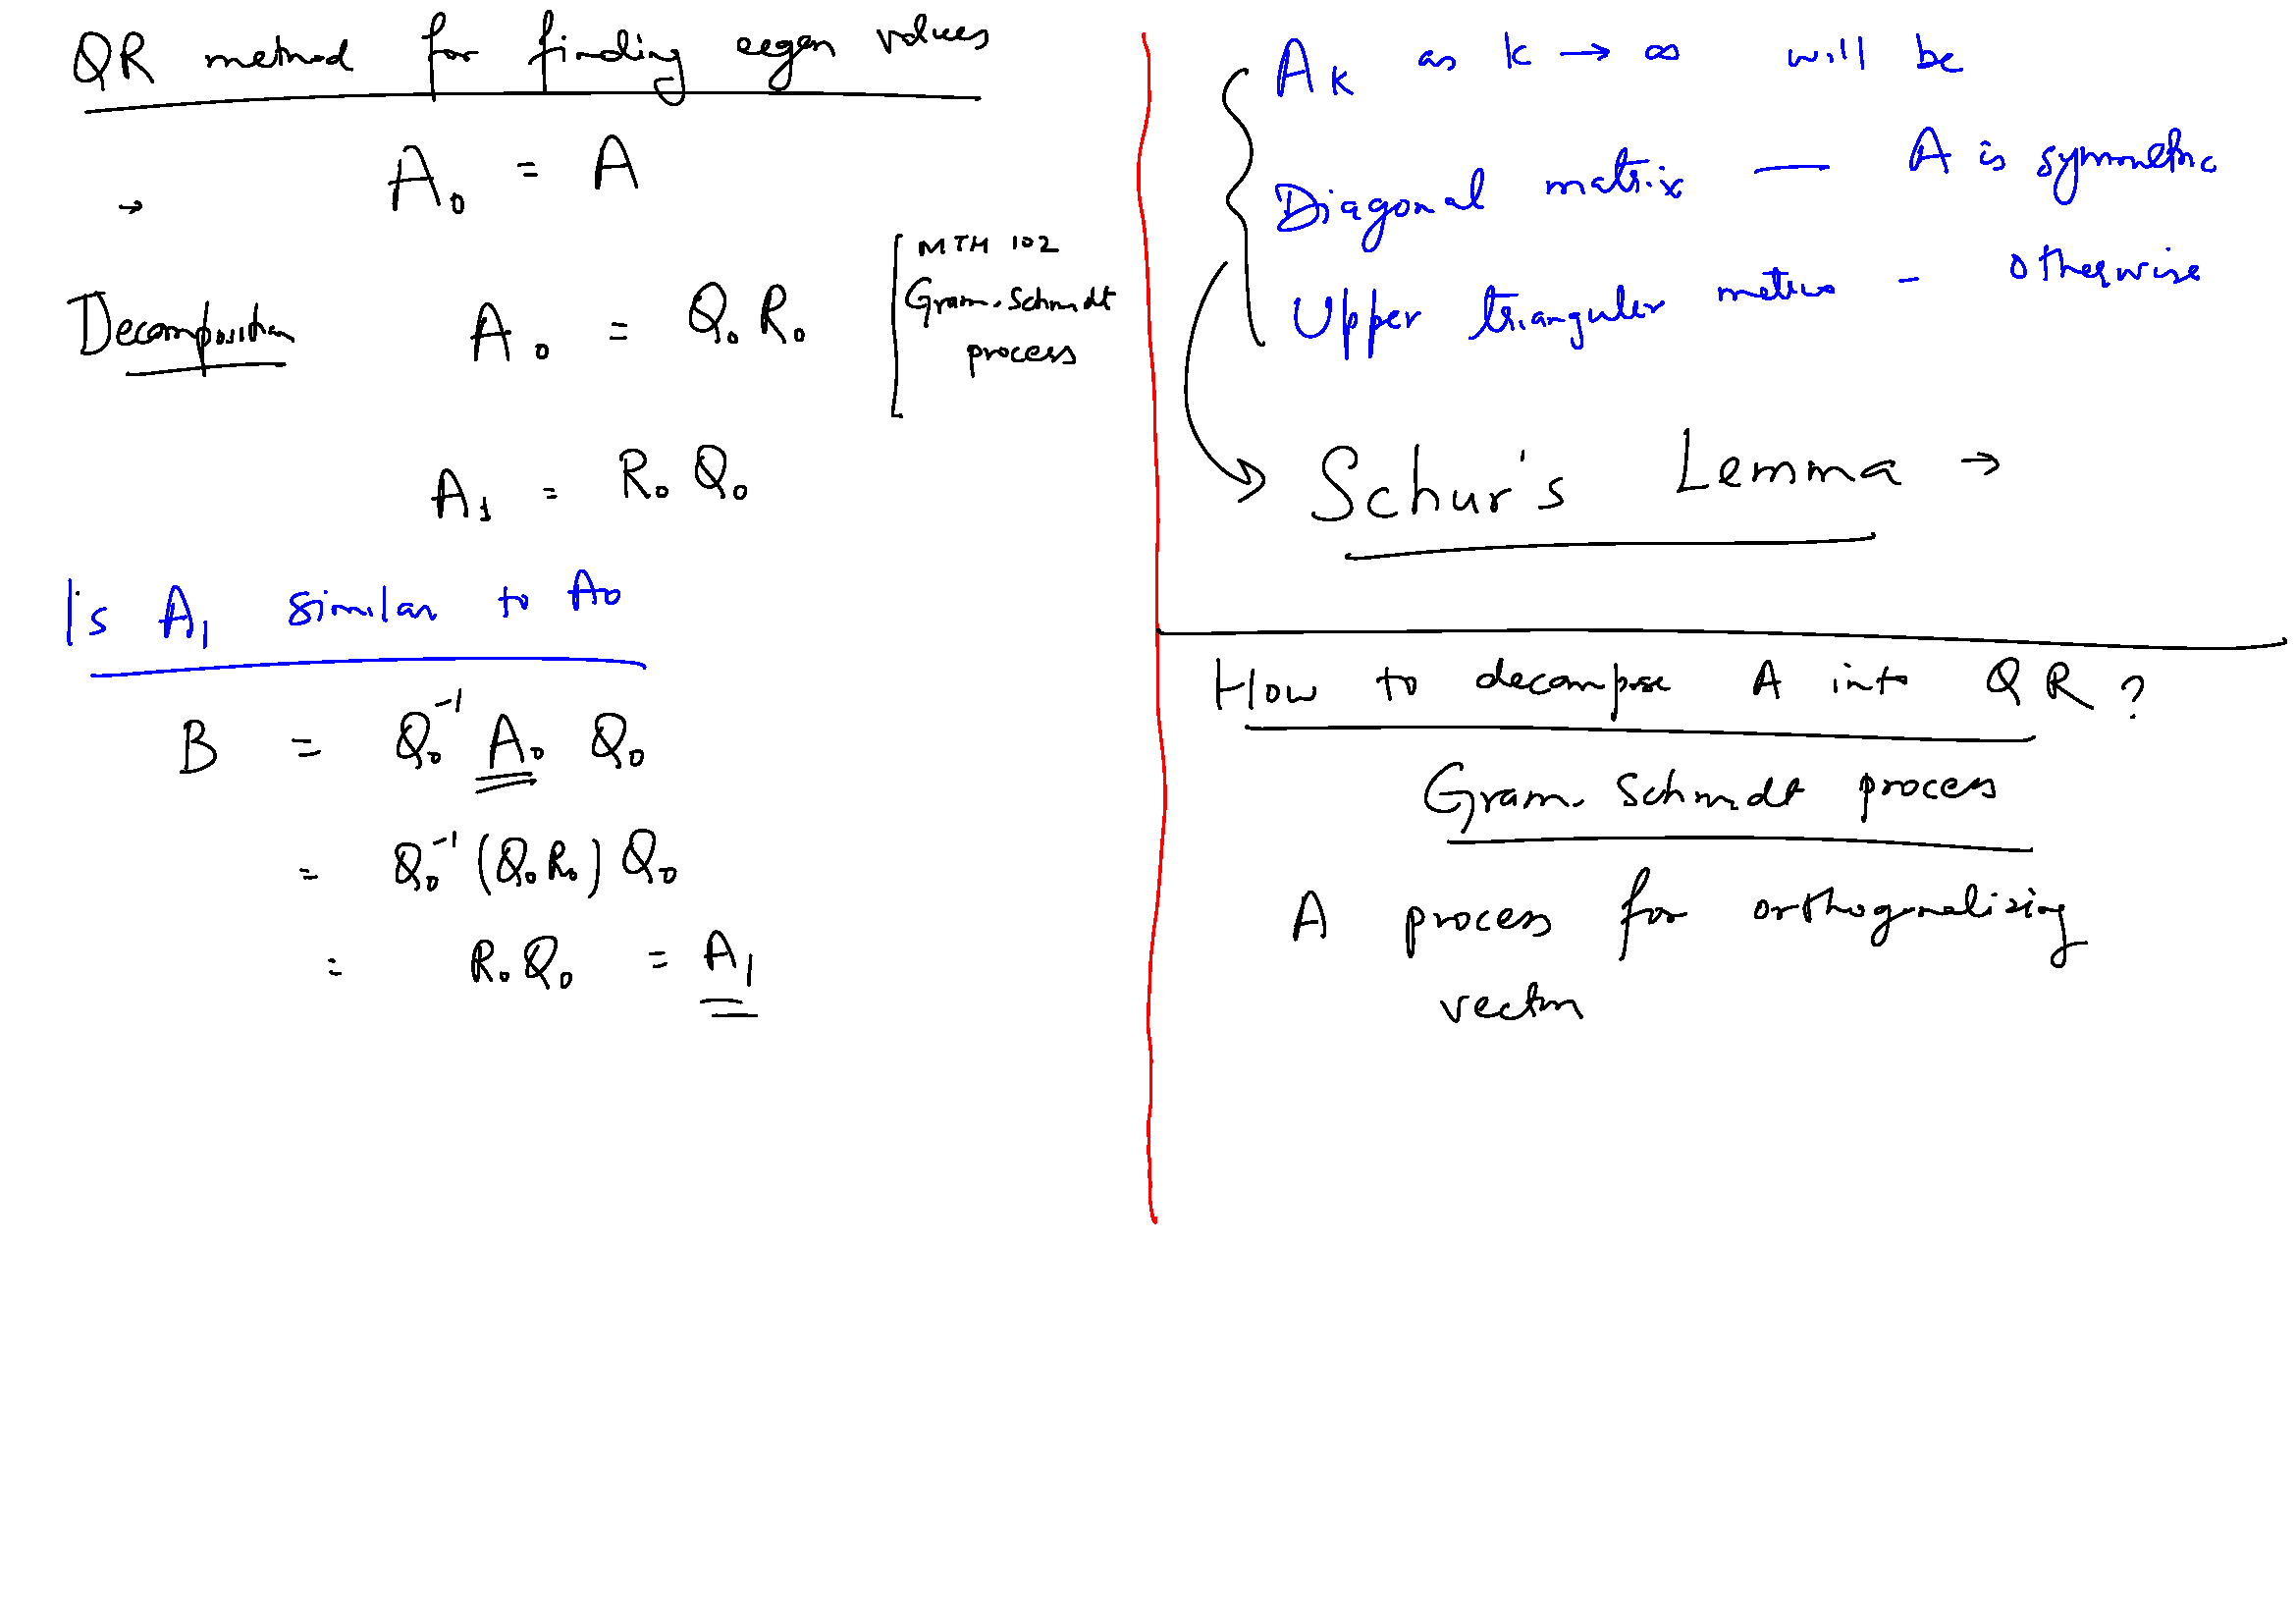 QR method for finding eigen values
→ A₀ = A
Decomposition A₀ = Q₀ R₀
[ MTH 102
Gram-Schmidt
process
A₁ = R₀ Q₀
Is A₁ similar to A₀
B = Q₀⁻¹ A₀ Q₀
= Q₀⁻¹ (Q₀ R₀) Q₀
= R₀ Q₀ = A₁
Aₖ as k → ∞ will be
Diagonal matrix — A is symmetric
Upper triangular matrix - otherwise
Schur's Lemma →
How to decompose A into QR ?
Gram-Schmidt process
A process for orthogonalizing
vector